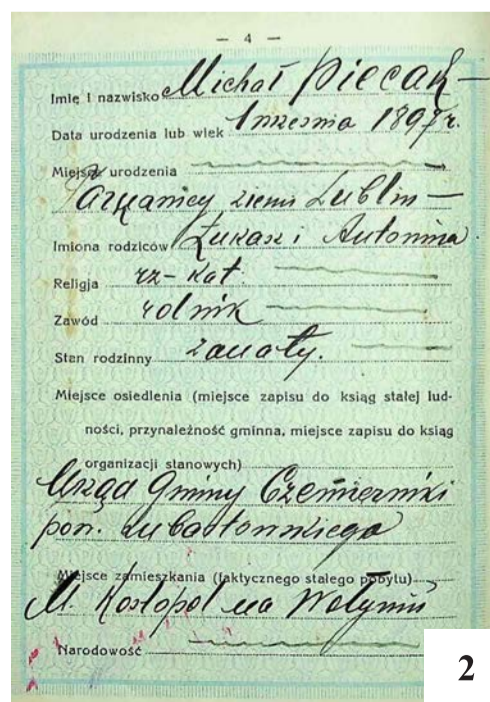 — 4 —
Imię i nazwisko Michał Piecak —
Data urodzenia lub wiek 1 września 1897 r.
Miejsce urodzenia
ziemi Lublin —
Imiona rodziców Łukasz i Antonina
Religja rz-kat.
Zawód rolnik
Stan rodzinny żonaty.
Miejsce osiedlenia (miejsce zapisu do ksiąg stałej lud-
ności, przynależność gminna, miejsce zapisu do ksiąg
organizacji stanowych)
Urząd Gminy Czemierniki
pow. Lubartowskiego
Miejsce zamieszkania (faktycznego stałego pobytu)
M. Kostopol na Wołyniu
Narodowość
2